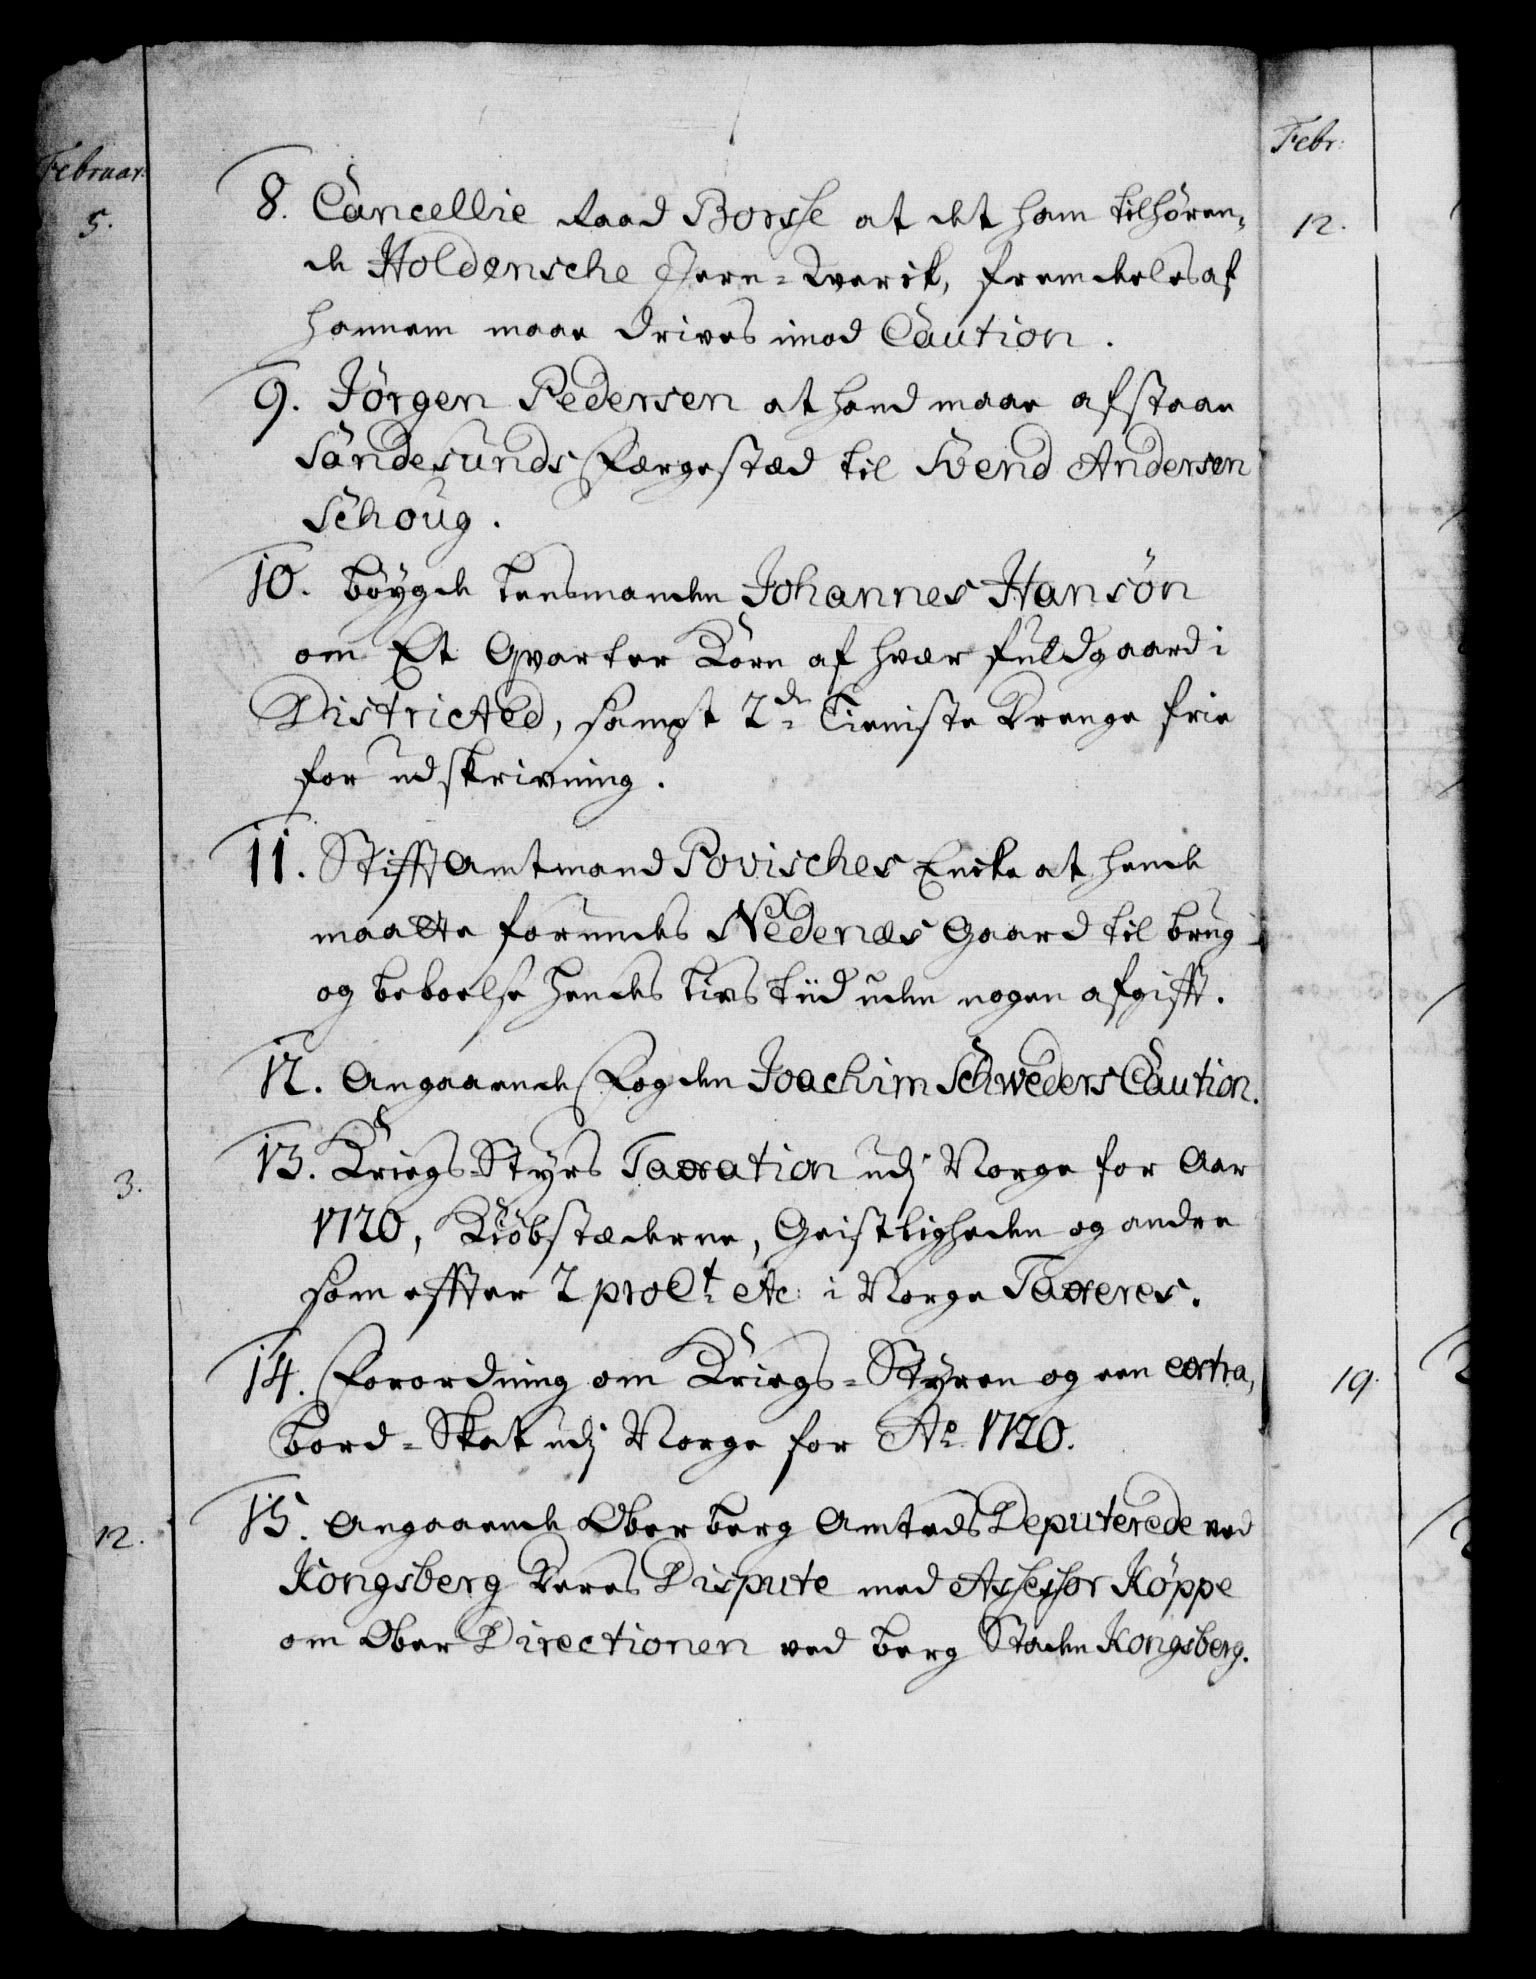 Februar:
5.
8. Cancellie Raad Borse at det ham tilhören,
de Holdensche Jern-Verck, fremdeles af
hannem maae drives imod Caution.
9. Jörgen Pedersen at hand maae afstaae
Sandesunds Færgestæd til Svend Andersen
Schoug.
10. Böygde Lensmanden Johannes Hansön
om Et Qvarter Korn af hvær fuldgaard i
Districted, sampt 2de Tieniste Drenge frie
for udskrivning.
11. StifftAmtmand Povisches Encke at hende
maatte forundes Nedenæs Gaard til brug
og beboelse hendes Livs tiid uden nogen afgifft.
12. Angaaende Fogden Joachim Schweders Caution.
3.
13. Kriegs-Styrs Taxation udj Norge for Aar
1720, Kiöbstæderne, Geistligheden og andre
som effter 2 pro Ct. etc: i Norge Taxeres.
14. Forordning om Kriegs-Styren og een extra,
Bord-Skat udj Norge for Ao. 1720.
12.
15. Angaaende Oberberg Amteds Deputerede ved
Kongsberg Deres Dispute med Assessor Köppe
om Ober Directionen ved berg Staden Kongsberg.
Febr:
12.
19.